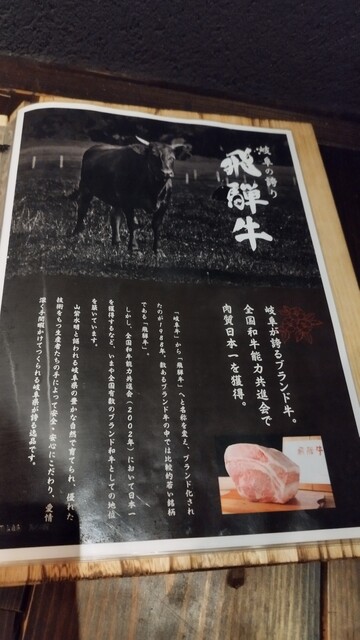 岐阜の誇り
飛騨牛
岐阜が誇るブランド牛。
全国和牛能力共進会で
肉質日本一を獲得。
「岐阜牛」から「飛騨牛」へと名称を変え、ブランド化され
たのが1988年。数あるブランド牛の中では比較的若い銘柄
である「飛騨牛」。
しかし、全国和牛能力共進会(2002年)において日本一
を獲得するなど、いまや全国有数のブランド和牛としての地位
を築いています。
山紫水明と謳われる岐阜県の豊かな自然で育てられ、優れた
技術をもつ生産者たちの手によって安全・安心にこだわり、愛情
深く手間暇かけてつくられる岐阜県が誇る逸品です。
飛騨牛